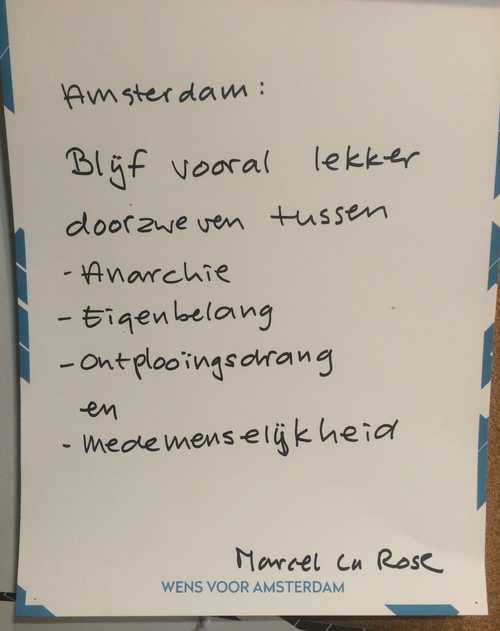 Amsterdam:
Blijf vooral lekker
doorzweven tussen
- Anarchie
- Eigenbelang
- Ontplooïngsdrang
en
- medemenselijkheid
Marcel La Rose
WENS VOOR AMSTERDAM